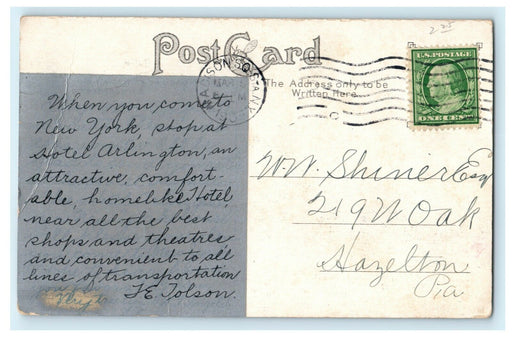 2 25
Post Card
MADISON SQ. STA. N.Y.
MAR
The Address only to be
Written Here.
U.S. POSTAGE
ONE CENT
When you come to
New York, stop at
Hotel Arlington, an
attractive, comfort-
able, homelike Hotel,
near all the best
shops and theatres
and convenient to all
lines of transportation
T E Tolson.
W.W. Shiner Esq
219 W Oak
Hazelton
Pa